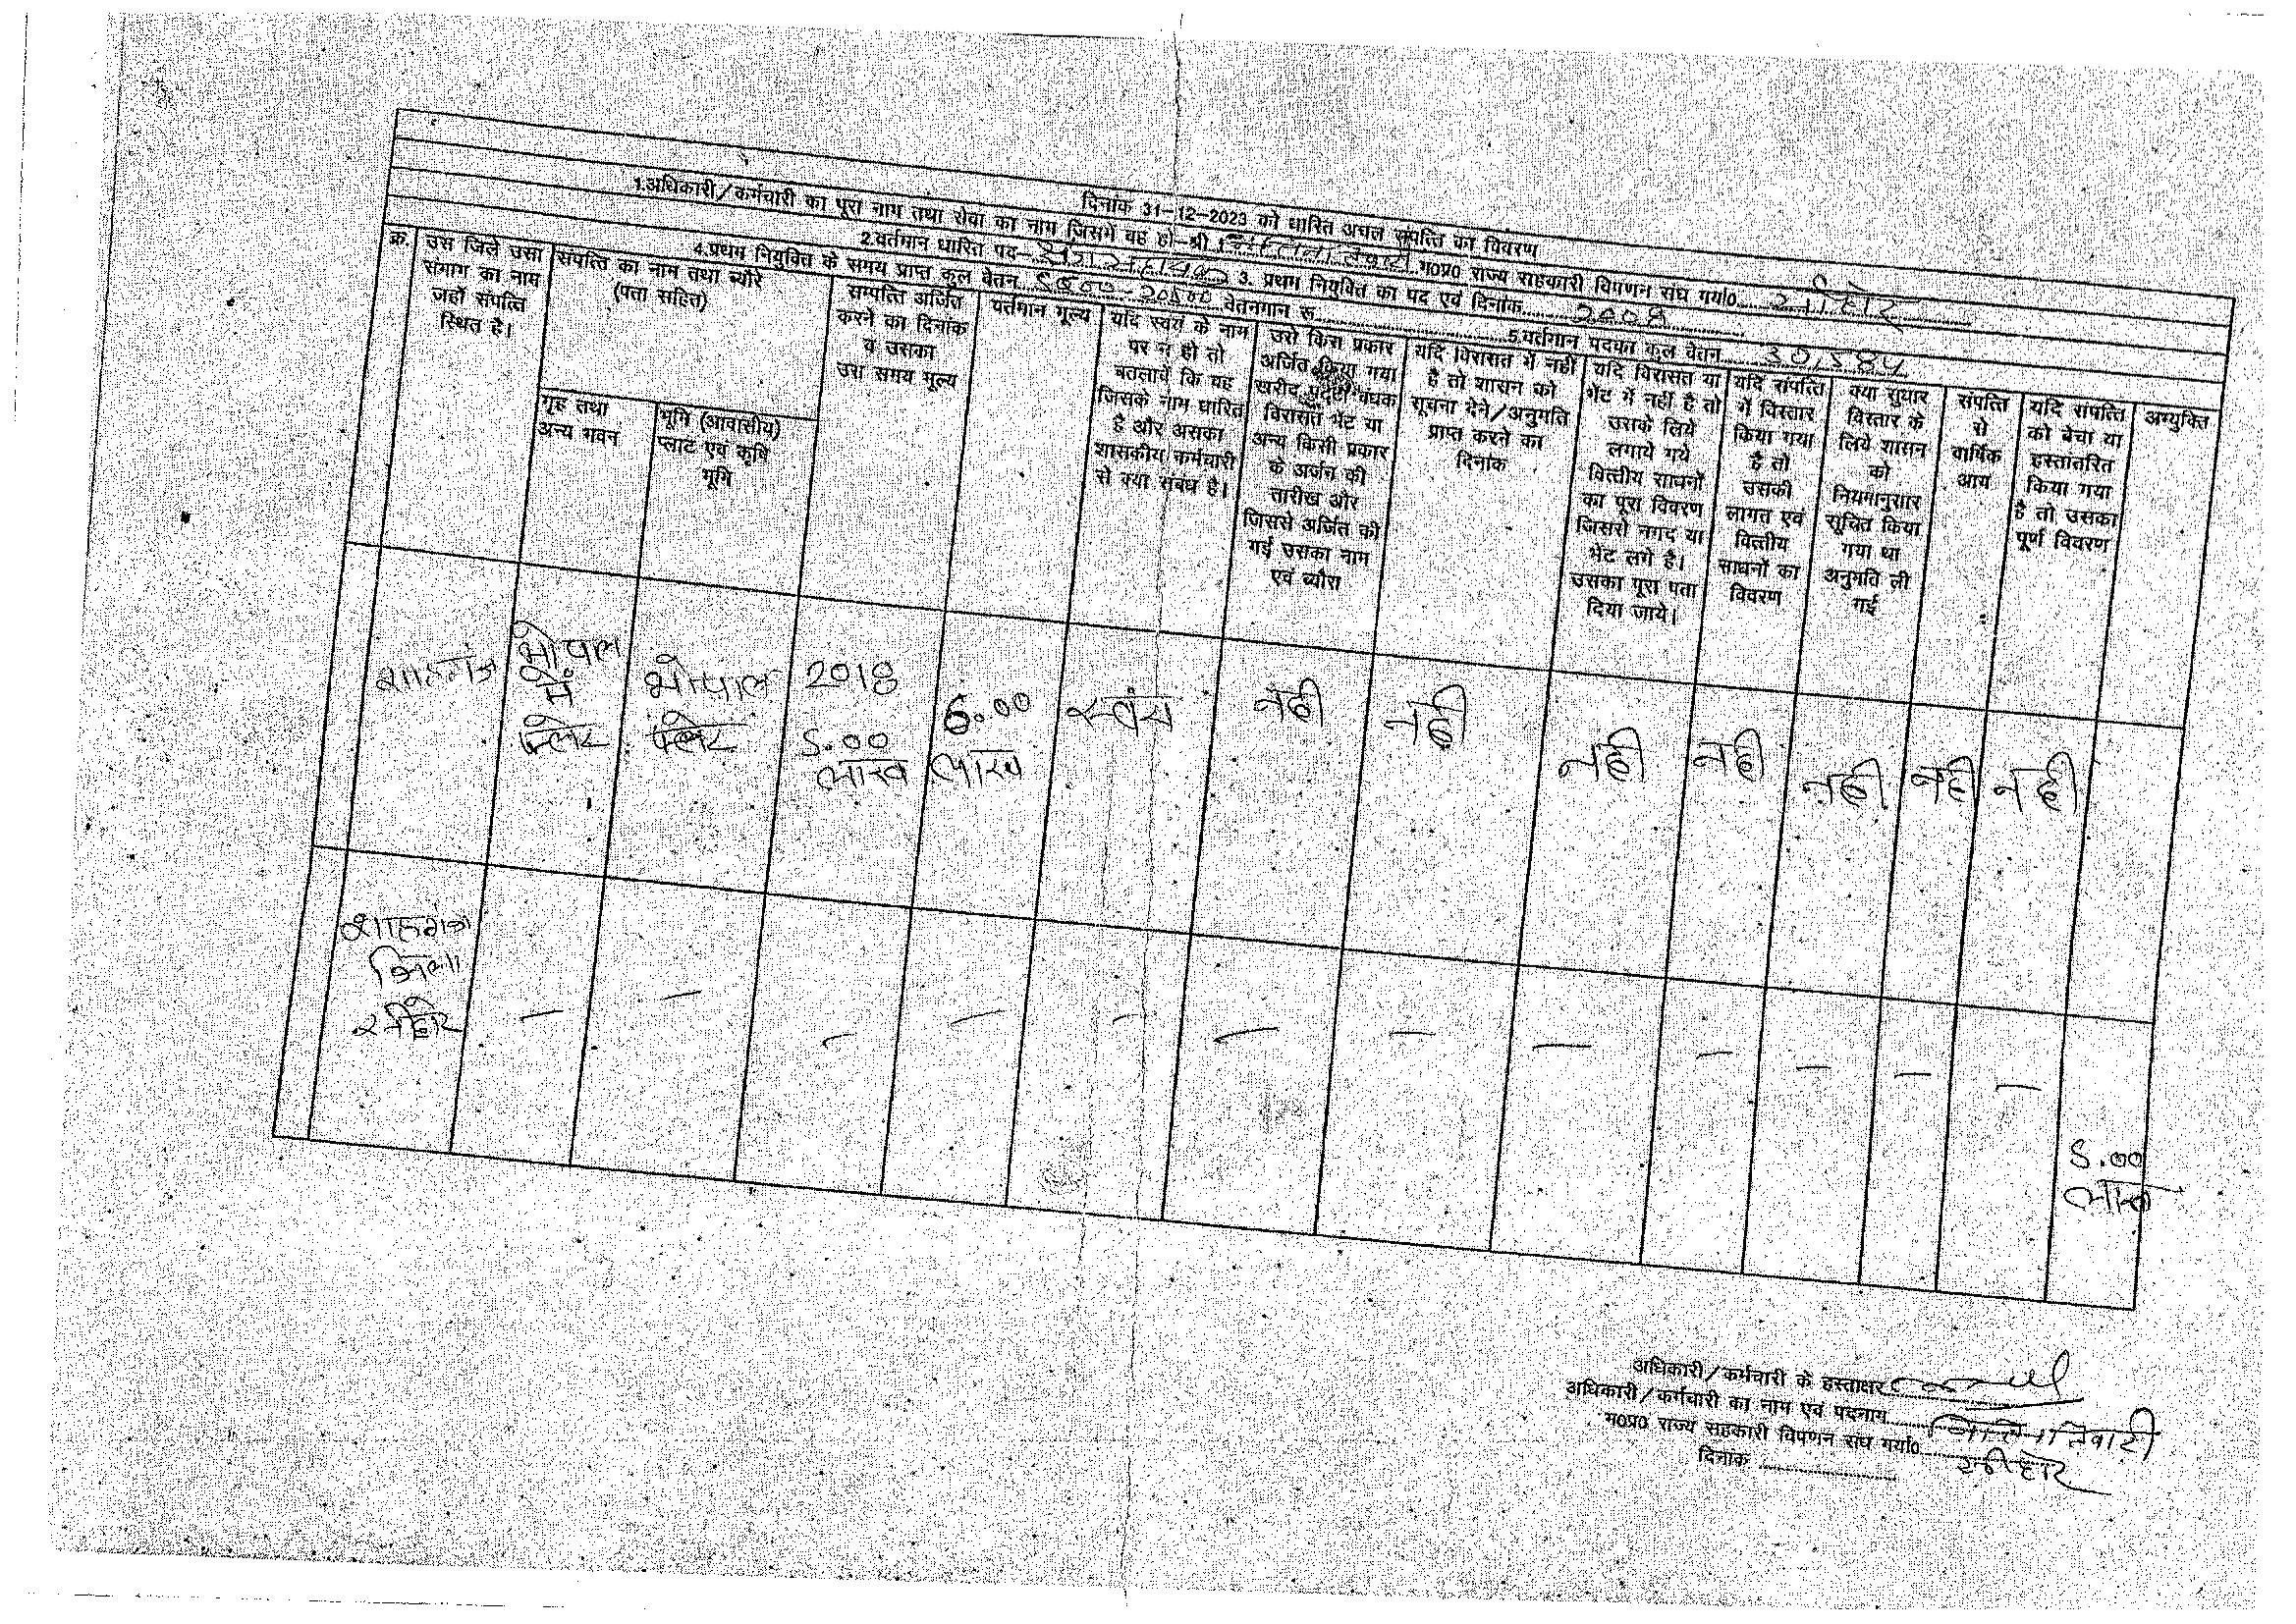 दिनांक 31-12-2023 को धारित अचल संपत्ति का विवरण
1.अधिकारी/कर्मचारी का पूरा नाम तथा सेवा का नाम जिसमें वह हो-श्री म0प्र0 राज्य सहकारी विपणन संघ मर्या0 सीहोर
2.वर्तमान धारित पद- 3. प्रथम नियुक्ति का पद एवं दिनांक 2008
4.प्रथम नियुक्ति के समय प्राप्त कुल वेतन वेतनमान रू 5.वर्तमान पदका कुल वेतन 30,584
क्र.
उस जिले उसा
संभाग का नाम
जहॉं संपत्ति
स्थित है।
संपत्ति का नाम तथा ब्यौरे
(पता सहित)
गृह तथा
अन्य भवन
भूमि (आवासीय)
प्लाट एवं कृषि
भूमि
सम्पत्ति अर्जित
करने का दिनांक
व उसका
उस समय मूल्य
वर्तमान मूल्य
यदि स्वयं के नाम
पर न हो तो
बतलायें कि यह
जिसके नाम धारित
है और असका
शासकीय कर्मचारी
से क्या संबंध है।
उसे किस प्रकार
अर्जित किया गया
खरीद पट्टी बंधक
विरासत भेंट या
अन्य किसी प्रकार
के अर्जन की
तारीख और
जिससे अर्जित की
गई उसका नाम
एवं ब्यौरा
यदि विरासत में नहीं
है तो शासन को
सूचना देने/अनुमति
प्राप्त करने का
दिनांक
यदि विरासत या
भेंट में नहीं है तो
उसके लिये
लगाये गये
वित्तीय साधनों
का पूरा विवरण
जिससे नगद या
भेंट लगे है।
उसका पूरा पता
दिया जाये।
यदि संपत्ति
में विस्तार
किया गया
है तो
उसकी
लागत एवं
वित्तीय
साधनों का
विवरण
क्या सुधार
विस्तार के
लिये शासन
को
नियमानुसार
सूचित किया
गया था
अनुमति ली
गई
संपत्ति
से
वार्षिक
आय
यदि संपत्ति
को बेचा या
हस्तांतरित
किया गया
है तो उसका
पूर्ण विवरण
अभ्युक्ति
शाहगंज
भोपाल
में
फ्लेट
भोपाल
फ्लेट
2018
5.00
लाख
6.00
लाख
स्वंय
नही
नही
नही
नही
नही
नही
नही
शाहगंज
जिला
सीहोर
—
—
—
—
—
—
—
—
—
—
—
—
5.00
लाख
अधिकारी/कर्मचारी के हस्ताक्षर
अधिकारी/कर्मचारी का नाम एवं पदनाम
म0प्र0 राज्य सहकारी विपणन संघ मर्या0 सीहोर
दिनांक